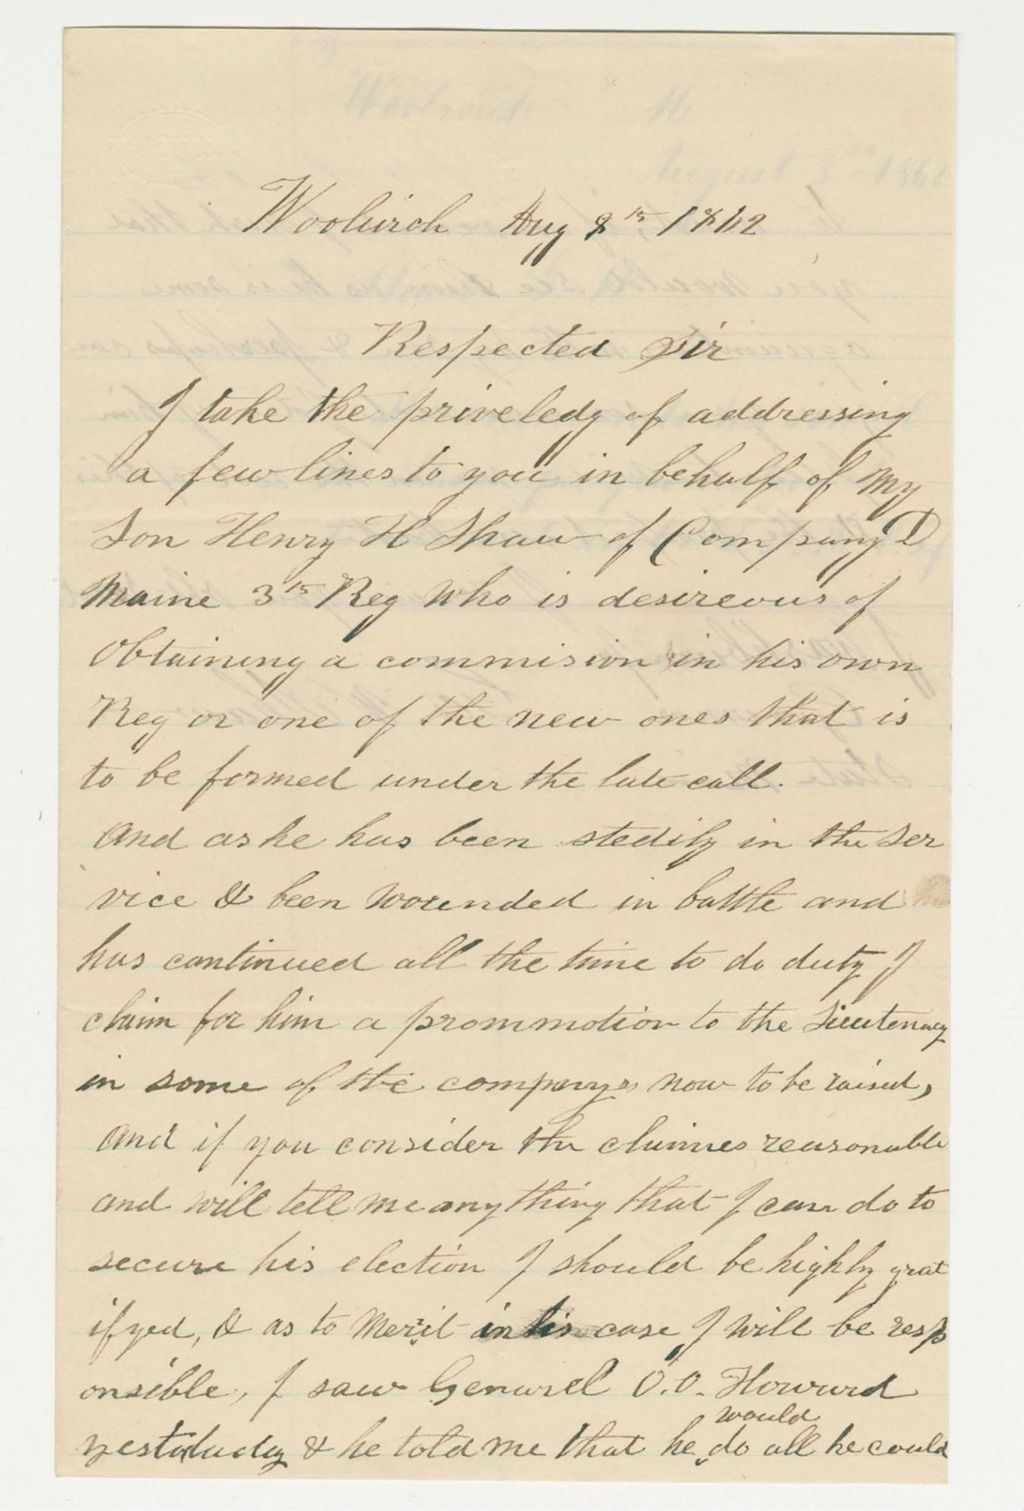 Woolwich Aug 8th 1862
Respected Sir
I take the priveledg of addressing
a few lines to you in behalf of my
Son Henry H Shaw of Company D
Maine 3th Reg who is desireous of
Obtaining a commision in his own
Reg or one of the new ones that is
to be formed under the late call.
And as he has been stedily in the ser
vice & been wounded in battle and
has continued all the time to do duty I
claim for him a prommotion to the Lieutenacy
in some of the companys now to be raised,
And if you consider the claimes reasonable
and will tell me any thing that I can do to
secure his election I should be highly grat
ifyed, & as to Merit in his case I will be resp
onsible, I saw Genurel O.O. Howard
yestuday & he told me that he would do all he could